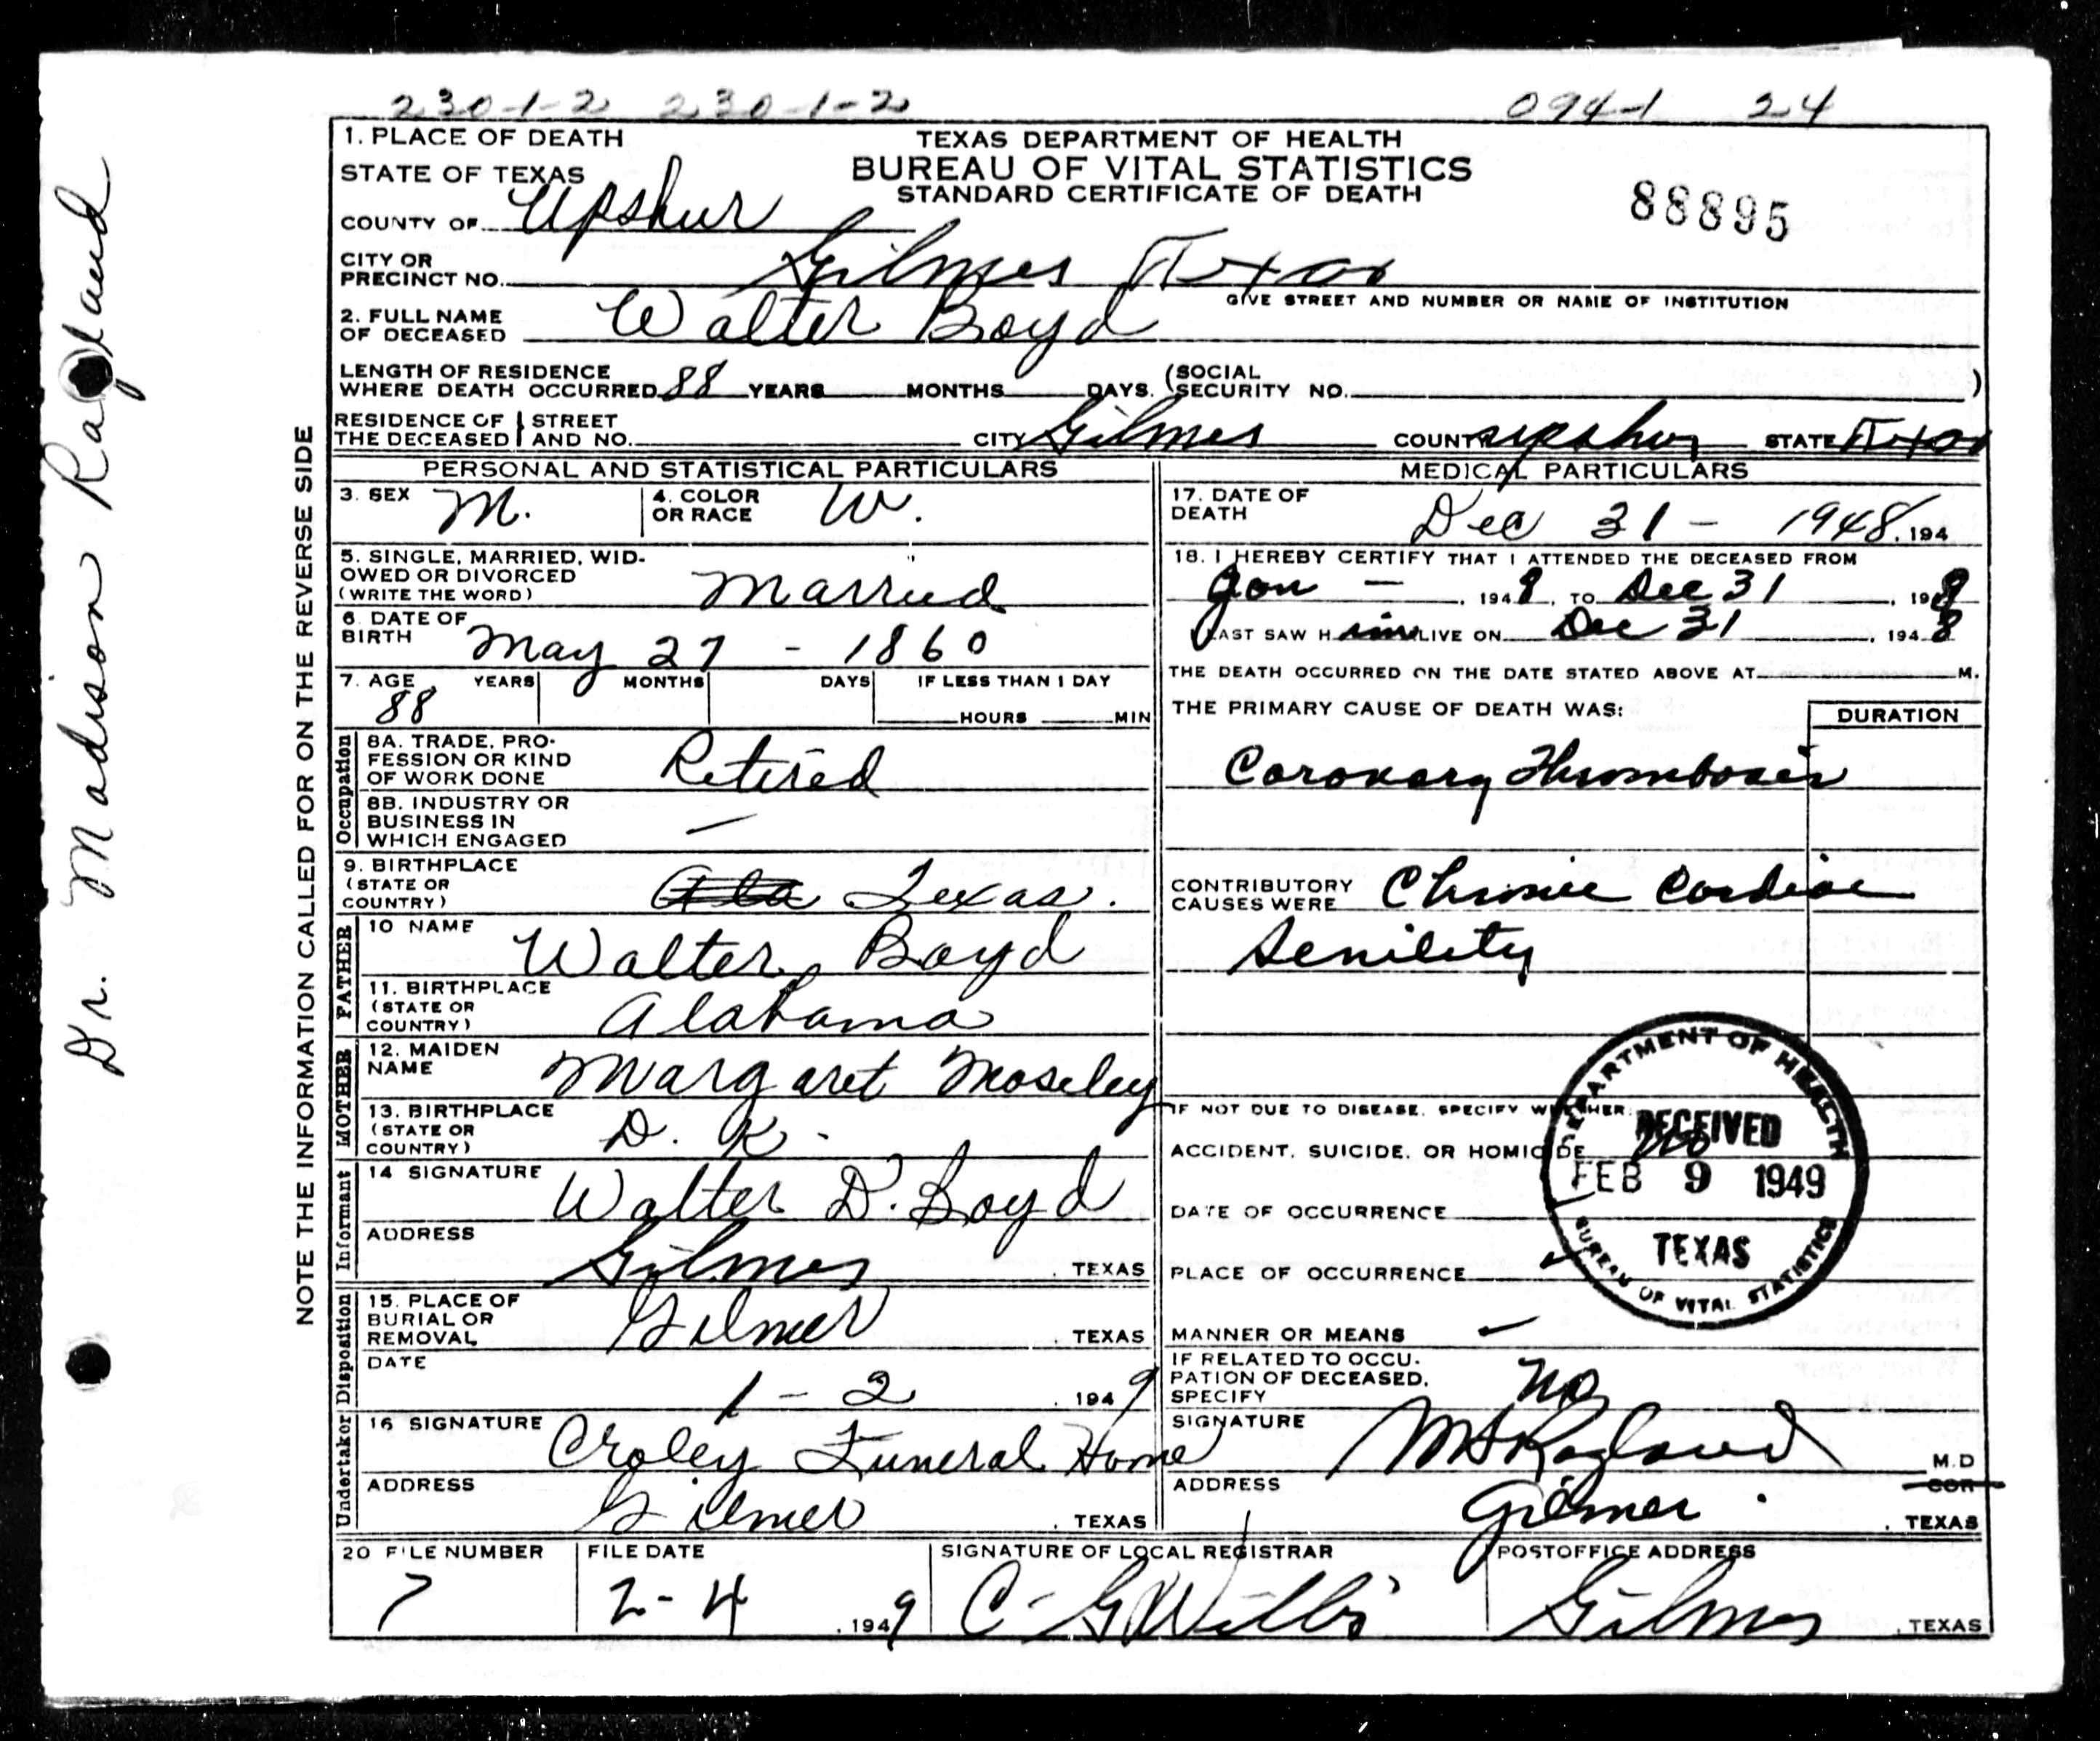 230-1-2 230-1-2 094-1 24
1. PLACE OF DEATH
STATE OF TEXAS
COUNTY OF Upshur
TEXAS DEPARTMENT OF HEALTH
BUREAU OF VITAL STATISTICS
STANDARD CERTIFICATE OF DEATH
88895
CITY OR
PRECINCT NO. Gilmer Texas
GIVE STREET AND NUMBER OR NAME OF INSTITUTION
2. FULL NAME
OF DECEASED Walter Boyd
LENGTH OF RESIDENCE
WHERE DEATH OCCURRED 88 YEARS MONTHS DAYS. (SOCIAL
SECURITY NO. )
RESIDENCE OF THE DECEASED STREET AND NO. CITY Gilmer COUNTY Upshur STATE Texas
PERSONAL AND STATISTICAL PARTICULARS
3. SEX M. 4. COLOR OR RACE W.
5. SINGLE, MARRIED, WID-
OWED OR DIVORCED
(WRITE THE WORD) Married
6. DATE OF
BIRTH May 27 - 1860
7. AGE YEARS MONTHS DAYS IF LESS THAN 1 DAY
88 HOURS MIN
Occupation
8A. TRADE, PRO-
FESSION OR KIND
OF WORK DONE Retired
8B. INDUSTRY OR
BUSINESS IN
WHICH ENGAGED —
9. BIRTHPLACE
(STATE OR
COUNTRY) Ala Texas.
FATHER
10 NAME Walter Boyd
11. BIRTHPLACE
(STATE OR
COUNTRY) Alabama
MOTHER
12. MAIDEN
NAME Margaret Moseley
13. BIRTHPLACE
(STATE OR
COUNTRY) D. K.
Informant
14 SIGNATURE Walter D. Boyd
ADDRESS Gilmer, TEXAS
Disposition
15. PLACE OF
BURIAL OR
REMOVAL Gilmer, TEXAS
DATE 1-2, 1949
Undertaker
16 SIGNATURE Croley Funeral Home
ADDRESS Gilmer, TEXAS
MEDICAL PARTICULARS
17. DATE OF
DEATH Dec 31 - 1948, 194
18. I HEREBY CERTIFY THAT I ATTENDED THE DECEASED FROM
Jan —, 1948, TO Dec 31, 198
LAST SAW Him ALIVE ON Dec 31, 1948
THE DEATH OCCURRED ON THE DATE STATED ABOVE AT M.
THE PRIMARY CAUSE OF DEATH WAS: DURATION
Coronary Thrombosis
CONTRIBUTORY
CAUSES WERE Chronic Cardiac
Senility
IF NOT DUE TO DISEASE, SPECIFY WHETHER:
ACCIDENT, SUICIDE, OR HOMICIDE no
DATE OF OCCURRENCE
PLACE OF OCCURRENCE
MANNER OR MEANS
IF RELATED TO OCCU-
PATION OF DECEASED,
SPECIFY No
SIGNATURE M S Ragland M.D
COR
ADDRESS Gilmer, TEXAS
DEPARTMENT OF HEALTH
RECEIVED
FEB 9 1949
TEXAS
BUREAU OF VITAL STATISTICS
20 FILE NUMBER FILE DATE SIGNATURE OF LOCAL REGISTRAR POSTOFFICE ADDRESS
7 2-4, 1949 C-G Willis Gilmer, TEXAS
NOTE THE INFORMATION CALLED FOR ON THE REVERSE SIDE
Dr. Madison Ragland